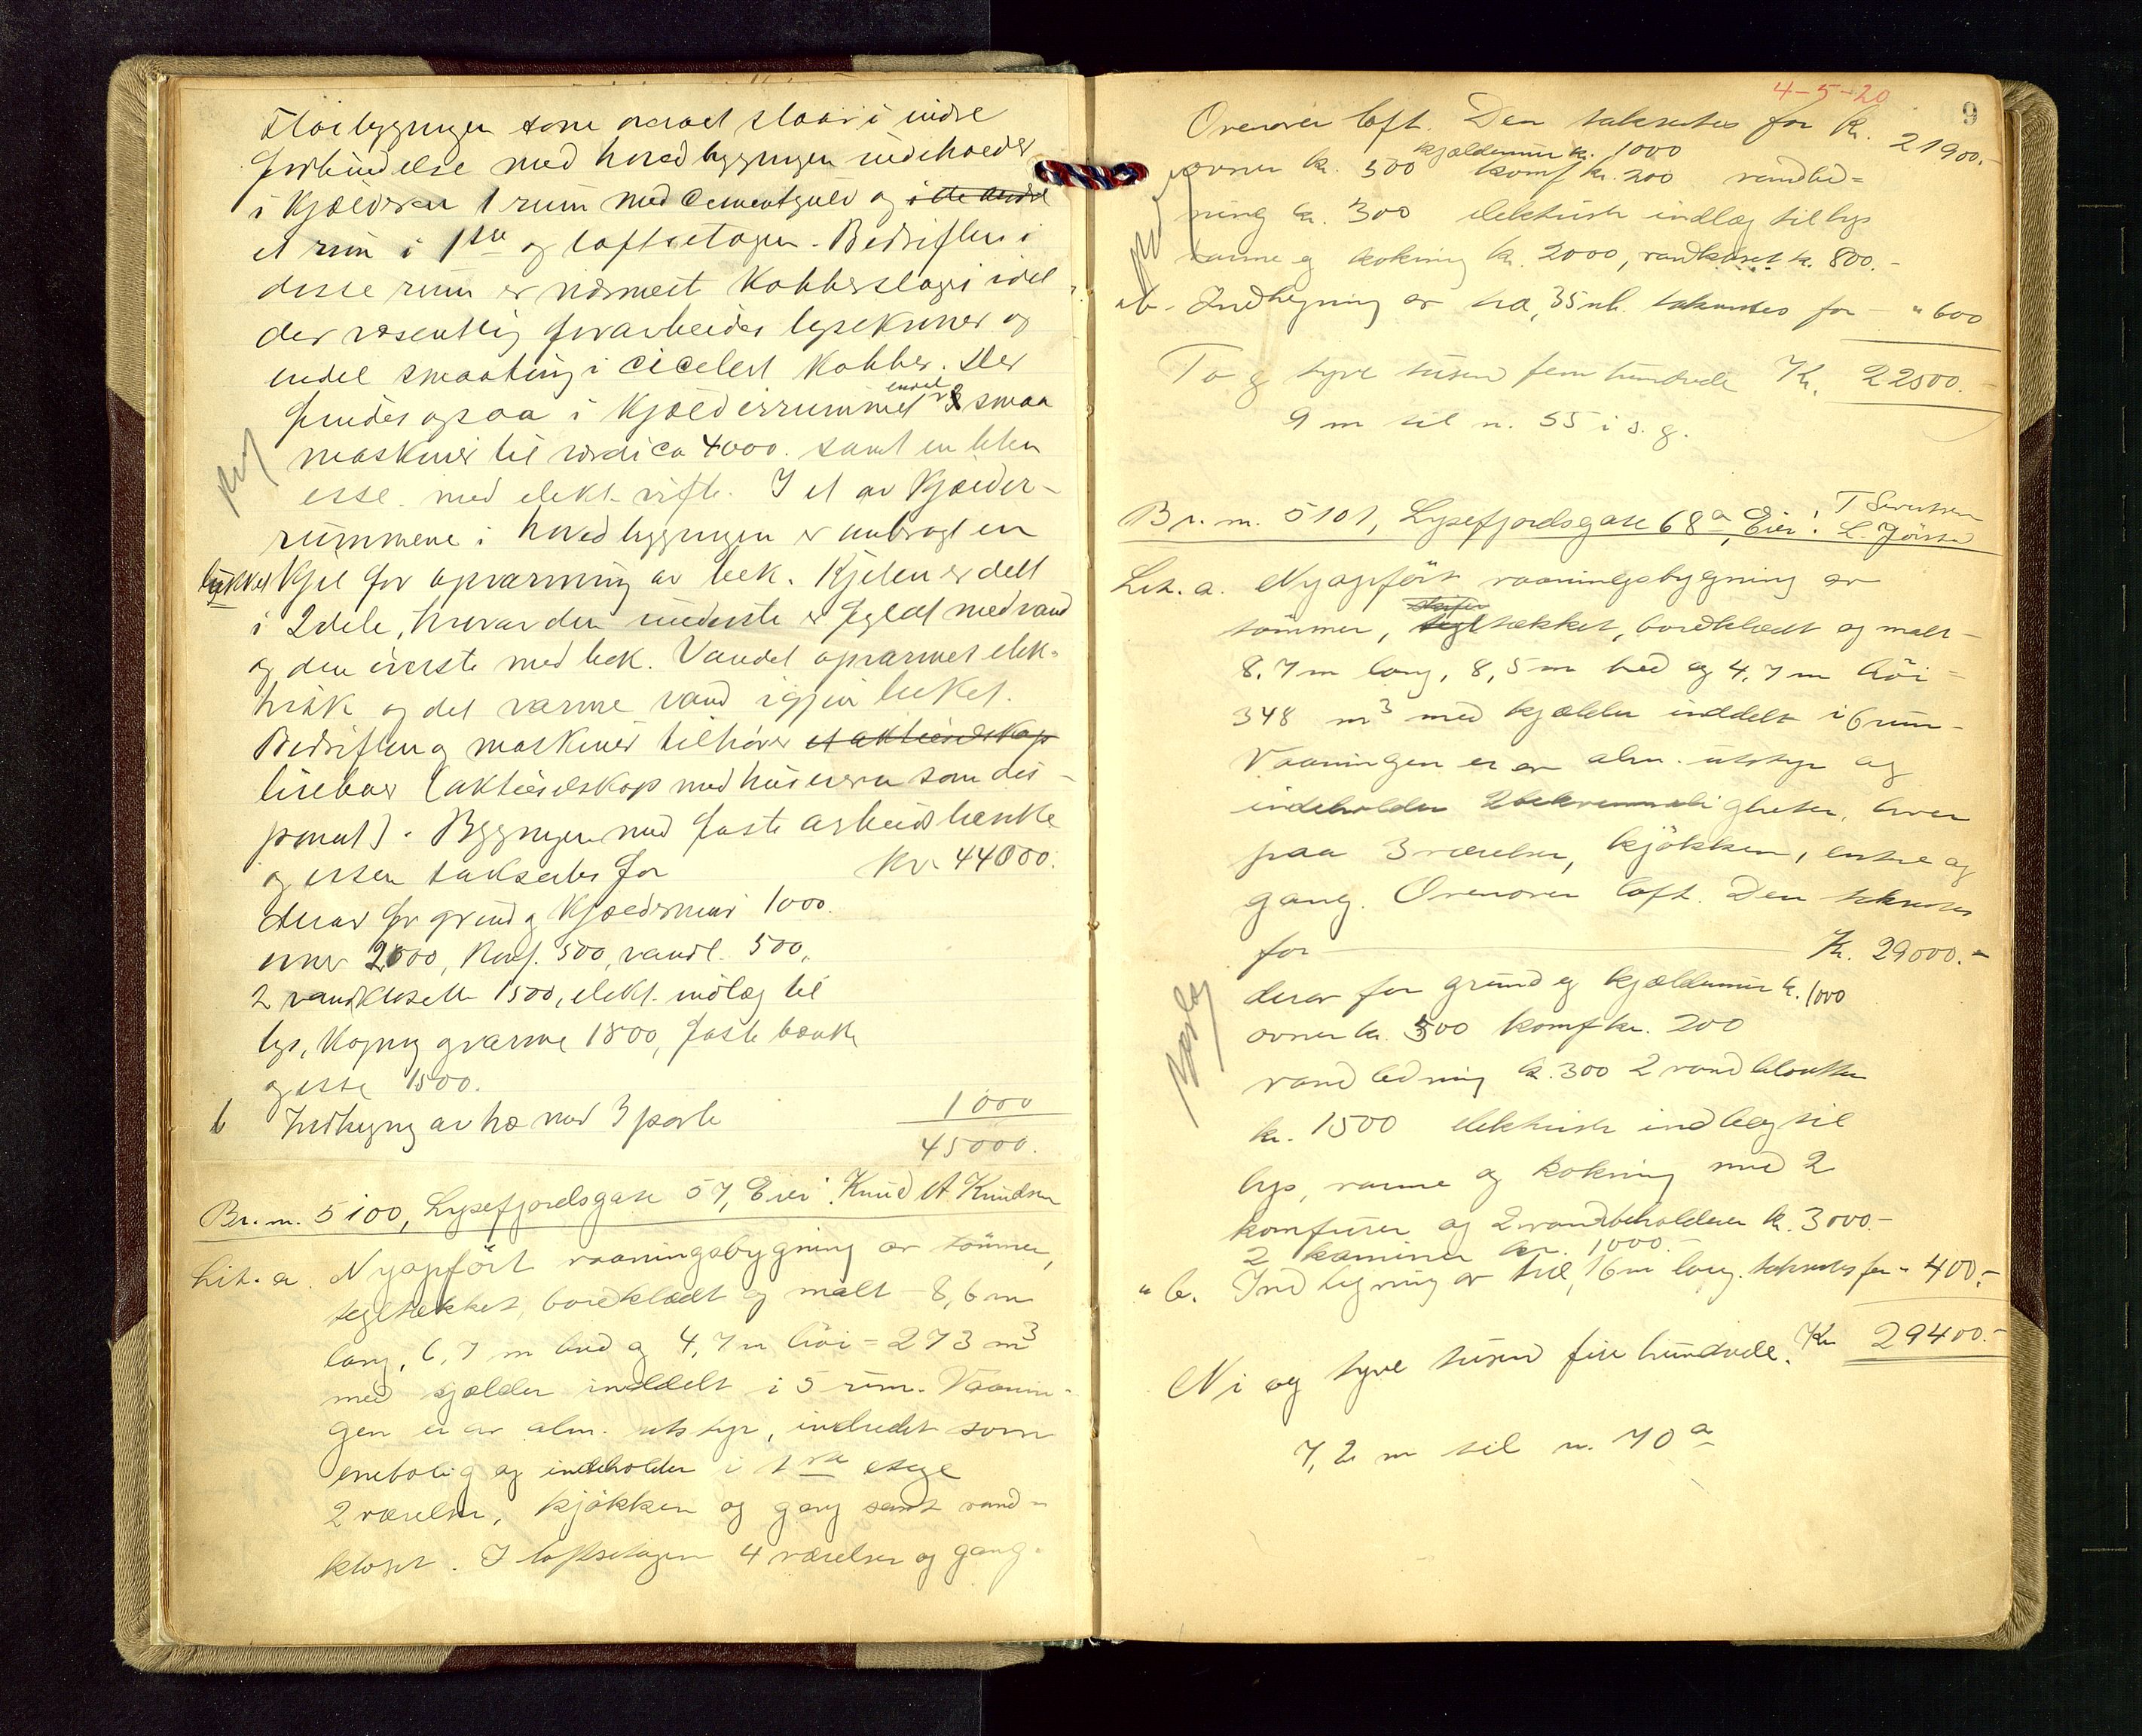 Fløibygningen som ogsaa staar i indre
forbindelse med hovedbygningen indeholder
i kjælderen 1 rum med cementgulv og i 1ste
et rum i 1ste og loftsetagen. Bedriften i
disse rum er nærmest kobberslageri idet
der væsentlig forarbeides lysekroner og
endel smaating i ciceleret kobber. Der
findes ogsaa i kjælderrummet endel smaa
maskiner til værdi ca 4000. samt en liten
esse med elekt. vifte. I et av kjælder-
rummene i hovedbygningen er anbragt en
lukket kjel for opvarming av bek. Kjelen er delt
i 2 dele, hvorav den underste er fyldt med vand
og den øverste med bek. Vandet opvarmes elek-
trisk og det varme vand igjen beket.
Bedriften og maskiner tilhører et aktieselskap
leieboer (aktieselskap med huseieren som dis-
ponent). Bygningen med faste arbeidsbænke
og essen takseres for Kr. 44000.
derav for grund og kjældermur 1000.
ovner 2000, komf. 500, vandl. 500,
2 vandklosetter 1500, elekt. indlæg til
lys, kogning og varme 1800, faste bænke
og esse 1500.
b Indhegning av træ med 3 porte 1000
45000.
Br. nr. 5100, Lysefjordsgate 57, Eier: Knud A Knudsen
Lit. a. Nyopført vaaningsbygning av tømmer,
tegltækket, bordklædt og malt - 8,6 m
lang, 6,7 m bred og 4,7 m høi = 273 m3
med kjælder inddelt i 5 rum. Vaanin-
gen er av alm. utstyr, indredet som
enebolig og indeholder i 1ste etage
2 værelser, kjøkken og gang samt vand-
kloset. I loftsetagen 4 værelser og gang.
4-5-20
9
Ovenover loft. Den takseres for Kr. 21900.-
kjældermur kr. 1000
ovner kr. 500 komf kr. 200 vandled=
ning kr. 300 elektrisk indlæg til lys
varme og kokning kr. 2000, vandkloset kr. 800.-
" b. Indhegning av træ, 35 m l. takseres for - " 600
To og tyve tusen fem hundrede Kr. 22500.-
9 m til n. 55 i s. g.
Br. nr. 5101, Lysefjordsgate 68a, Eier: T Sivertsen
L. Jörstad
Lit. a. Nyopført vaaningsbygning av
skifer
tømmer, tegltækket, bordklædt og malt -
8,7 m lang, 8,5 m bred og 4,7 m høi =
348 m3 med kjælder inddelt i 6 rum.
Vaaningen er av alm. utstyr og
indeholder 2 bekvemmeligheter, hver
paa 3 værelser, kjøkken, entre og
gang. Ovenover loft. Den takseres
for Kr. 29000.-
derav for grund og kjældermur kr. 1000
ovner kr. 500 komf kr. 200
vandledning kr. 300 2 vandklosetter
kr. 1500 elektrisk indlæg til
lys, varme og kokning med 2
komfurer og 2 vandbeholdere kr. 3000.-
2 kaminer kr. 1000.-
" b. Indhegning av træ, 16 m lang. takseres for " 400.-
Ni og tyve tusen fire hundrede. Kr 29400.-
7,2 m til n. 70a